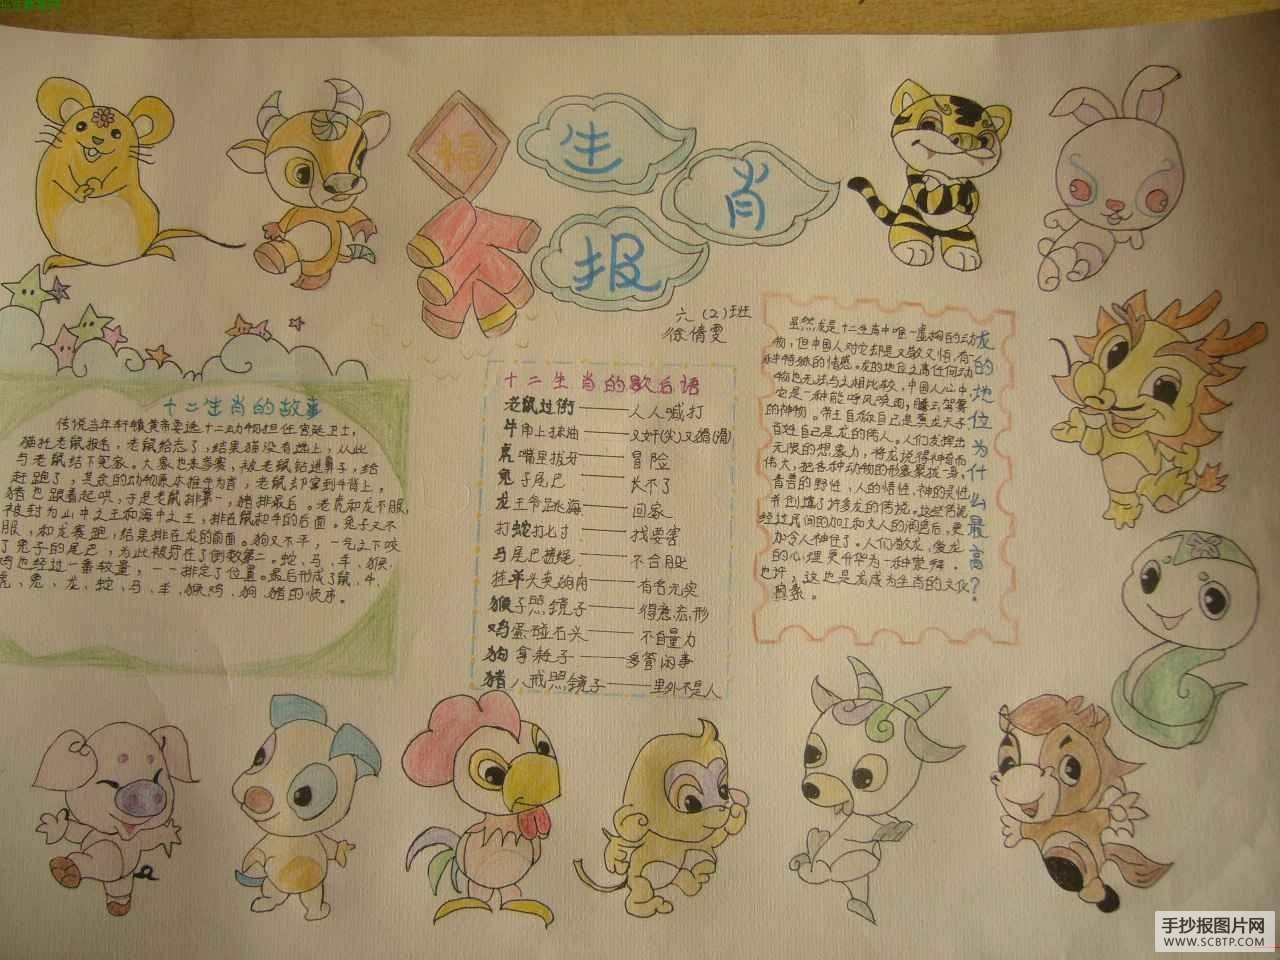 福
生
肖
报
六(2)班
徐倩雯
十二生肖的故事
传说当年轩辕黄帝要选十二动物担任宫廷卫士,
猫托老鼠报名,老鼠给忘了,结果猫没有选上,从此
与老鼠结下冤家。大象也来参赛,被老鼠钻进鼻子,给
赶跑了,其余的动物原本推牛为首,老鼠却窜到牛背上,
猪也跟着起哄,于是老鼠排第一,猪排最后。老虎和龙不服,
被封为山中之王和海中之王,排在鼠和牛的后面。兔子又不
服,和龙赛跑,结果排在龙的前面。狗又不平,一气之下咬
了兔子的尾巴,为此被罚在了倒数第二。蛇、马、羊、猴、
鸡也经过一番较量,一一排定了位置。最后形成了鼠、牛、
虎、兔、龙、蛇、马、羊、猴鸡、狗、猪的顺序。
十二生肖的歇后语
老鼠过街——人人喊打
牛角上抹油——又奸(尖)又猾(滑)
虎嘴里拔牙——冒险
兔子尾巴——长不了
龙王爷跳海——回家
打蛇打七寸——找要害
马尾巴搓绳——不合股
挂羊头卖狗肉——有名无实
猴子照镜子——得意忘形
鸡蛋碰石头——不自量力
狗拿耗子——多管闲事
猪八戒照镜子——里外不是人
龙的地位为什么最高?
虽然龙是十二生肖中唯一虚构的动
物,但中国人对它却是又敬又怕,有
种特殊的情感。龙的地位之高任何动
物也无法与之相比较,中国人心中,
它是一种能呼风唤雨,腾云驾雾
的神物。帝王自称自己是真龙天子,
百姓自己是龙的传人。人们发挥出
无限的想象力,将龙说得神奇而
伟大,把各种动物的形象聚拢一身,
兽的野性,人的悟性,神的灵性
并创造了许多龙的传说。这些传说
经过民间的加工和文人的润色后,更
加令人神往了。人们敬龙,爱龙
的心理更升华为一种崇拜。
也许,这也是龙成为生肖的文化
现象。
手抄报图片网
WWW.SCBTP.COM